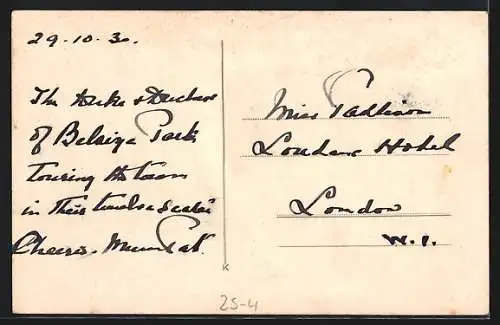 29.10.30.
The Duke & Duchess
of Belsize Park
touring the town
in their
Cheerio.
Miss
London Hotel
London
W.1.
25-4